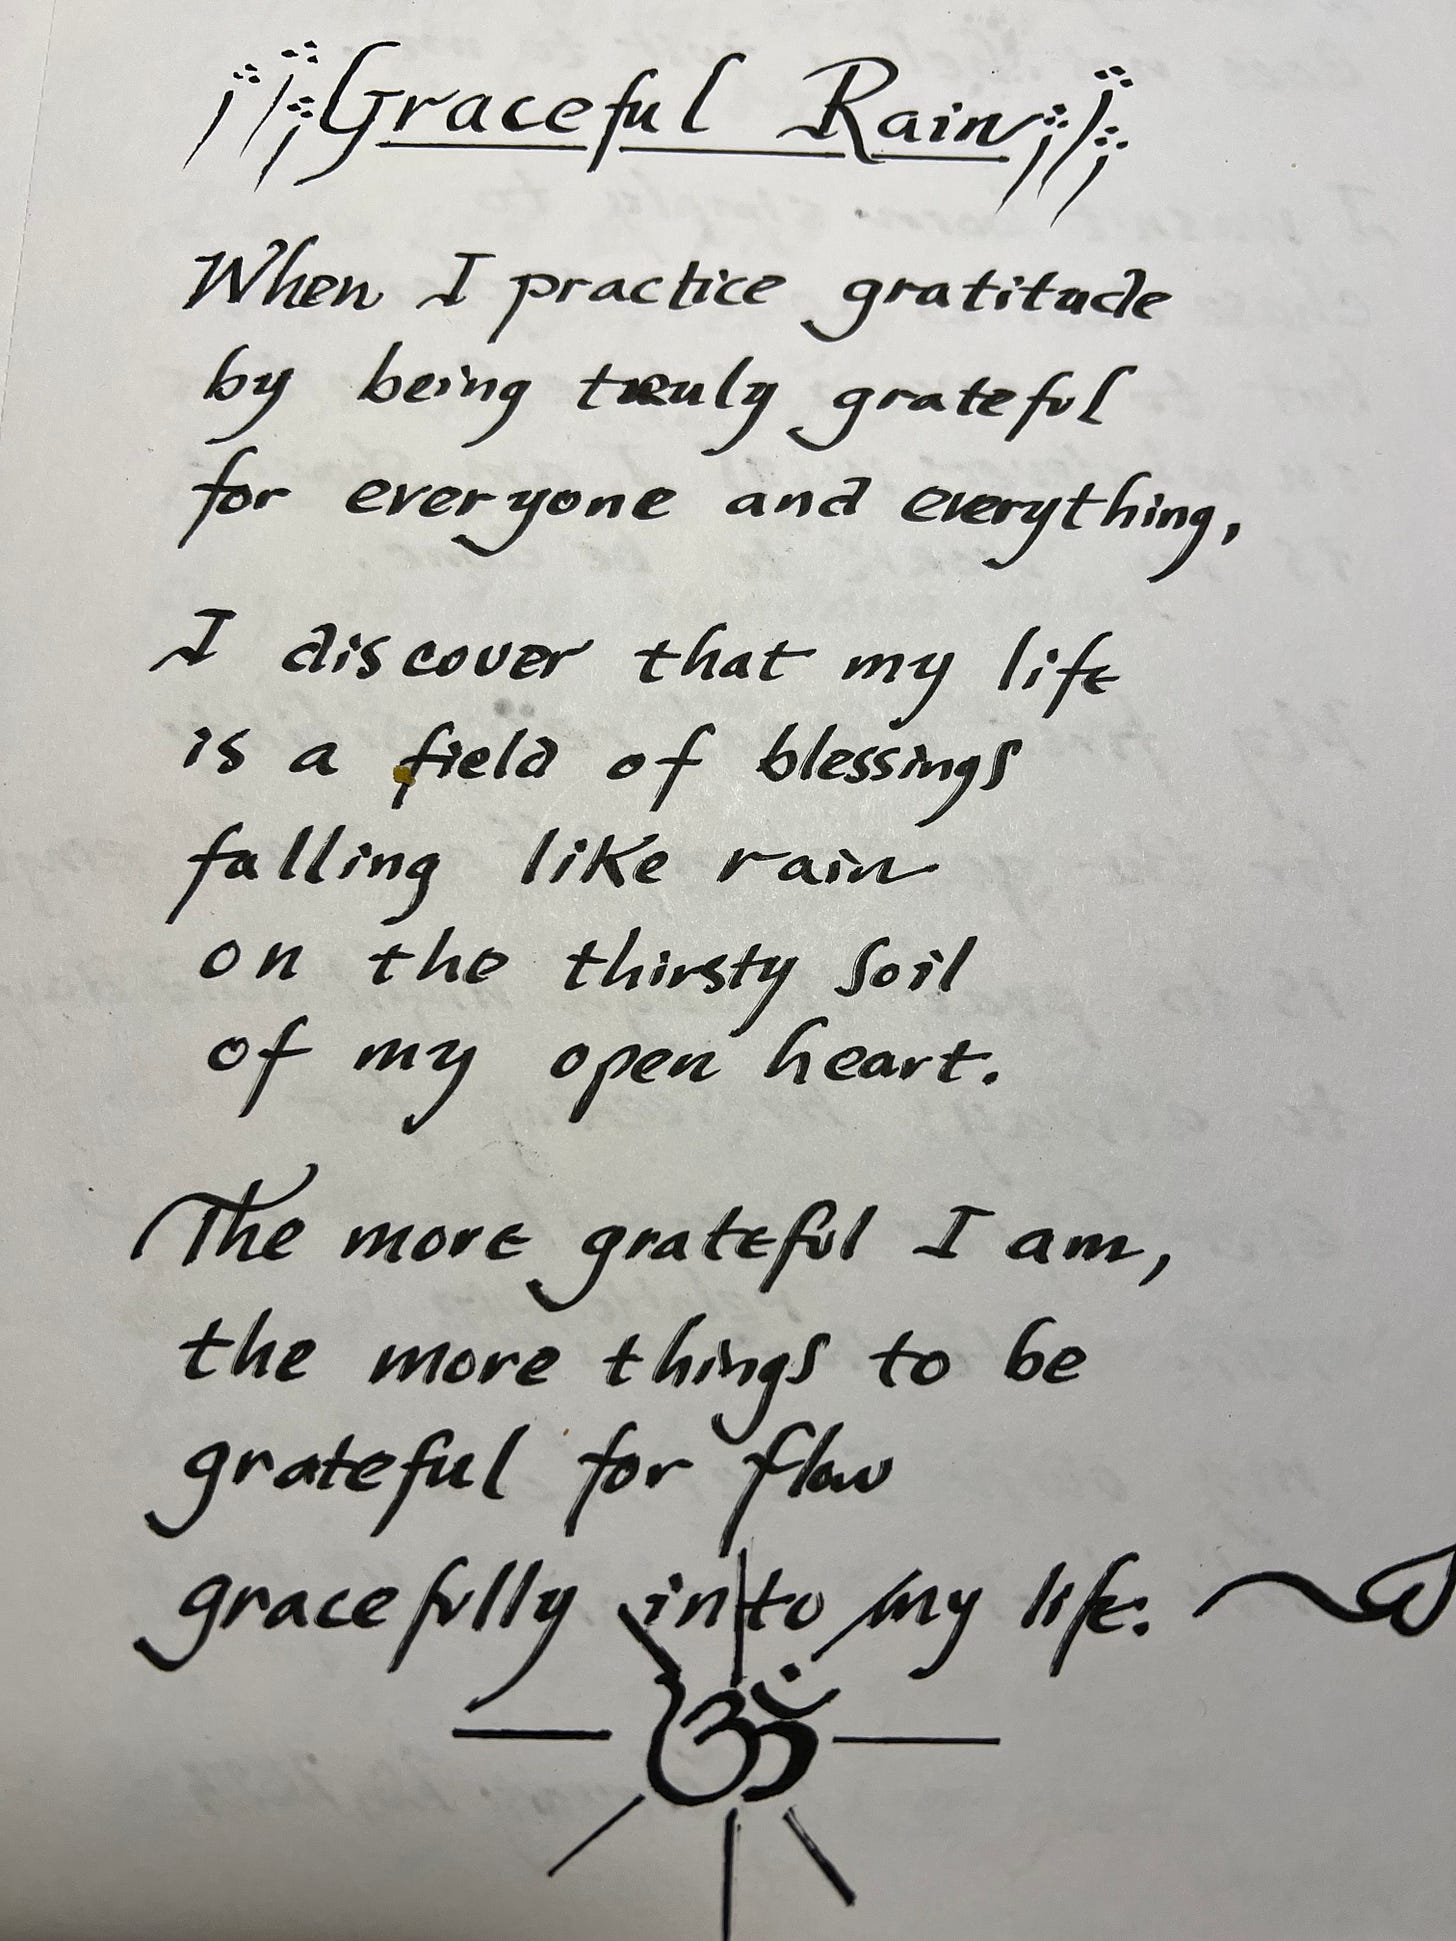 Graceful Rain
When I practice gratitude
by being truly grateful
for everyone and everything,
I discover that my life
is a field of blessings
falling like rain
on the thirsty soil
of my open heart.
The more grateful I am,
the more things to be
grateful for flow
gracefully into my life.
ॐ